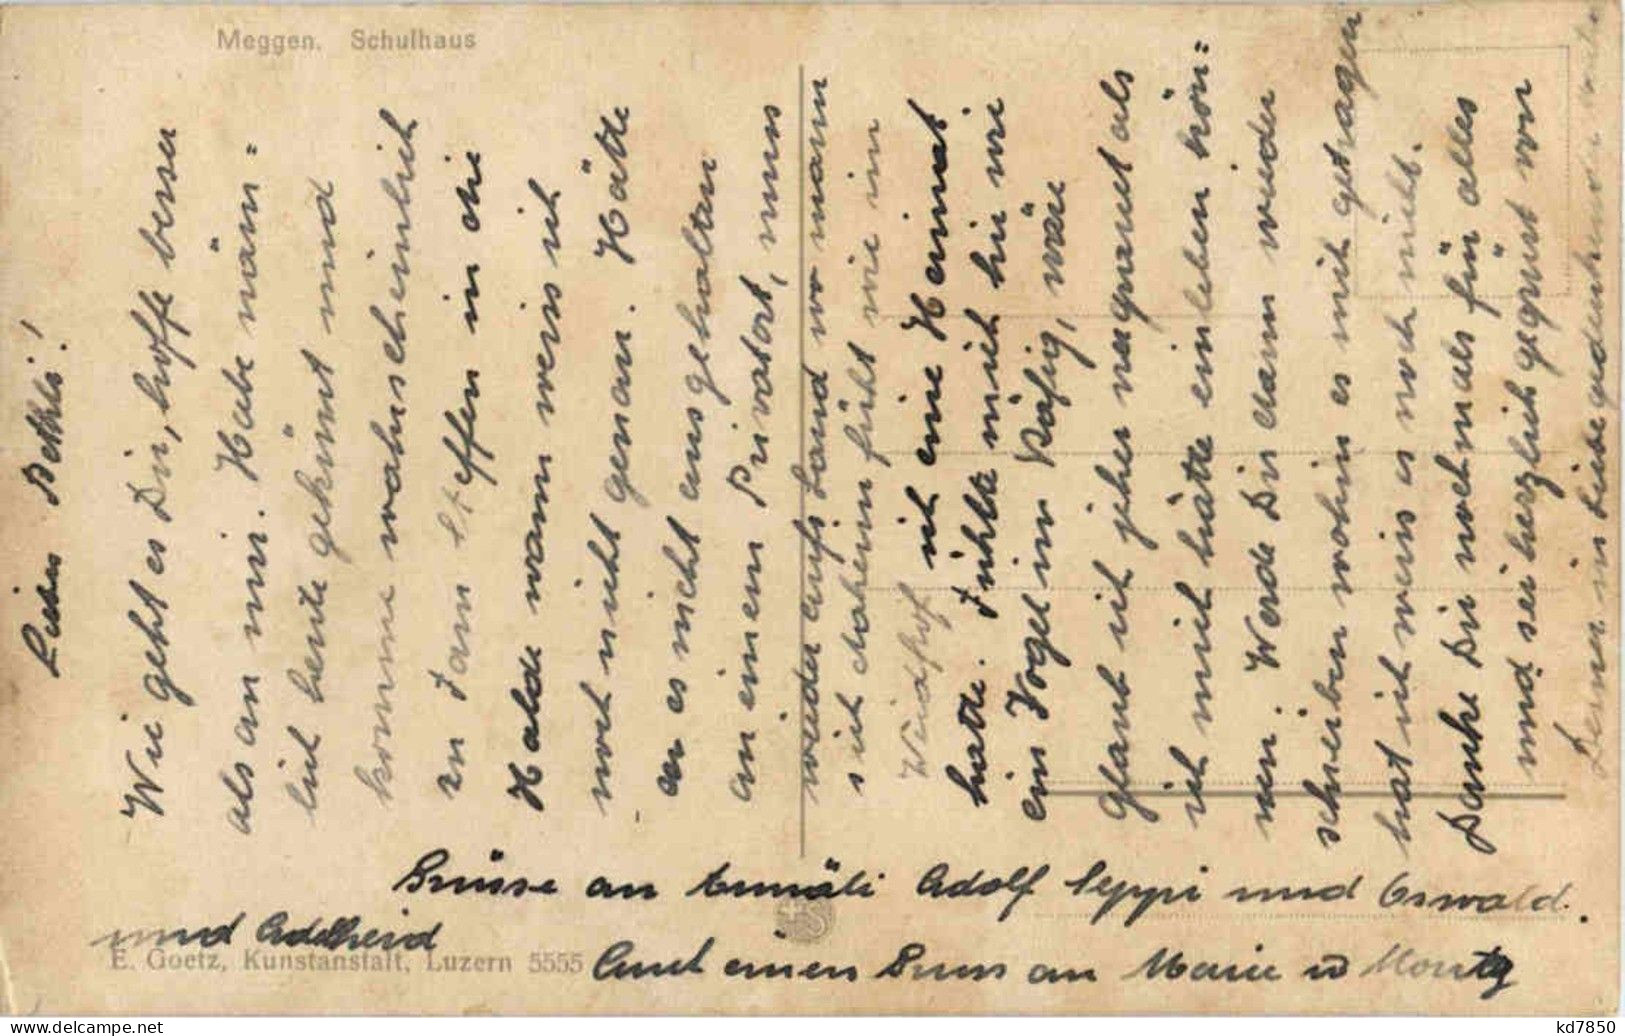 Meggen. Schulhaus
Liebes Bethli!
Wie geht es Dir, hoffe besser
als an mir. Habe näm=
lich heute gekünt und
komme wahrscheinlich
zu Fam Steffen in die
Halde wann weis ich
noch nicht genau. Hätte
er es nicht ausgehalten
an einem Privatort, muss
wieder aufs Land wo man
sich daheim fühlt wie im
Weidhof ich eine Heimat
hatte. Fühlte mich hie wie
ein Vogel im Käfig, wäre
glaub ich jeher vergraut als
ich mich hätte einleben kön=
nen. Werde Dir dann wieder
schreiben wohin es mich getragen
hat ich weis es noch nicht.
Danke Dir nochmals für alles
und sei herzlich gegrüst von
Deiner in Liebe gedenkender
Grüsse an Annäli Adolf Seppi und Oswald.
und Adelheid
Auch einen Gruss an Marie u Moritz
E. Goetz, Kunstanstalt, Luzern 5555
kd7850